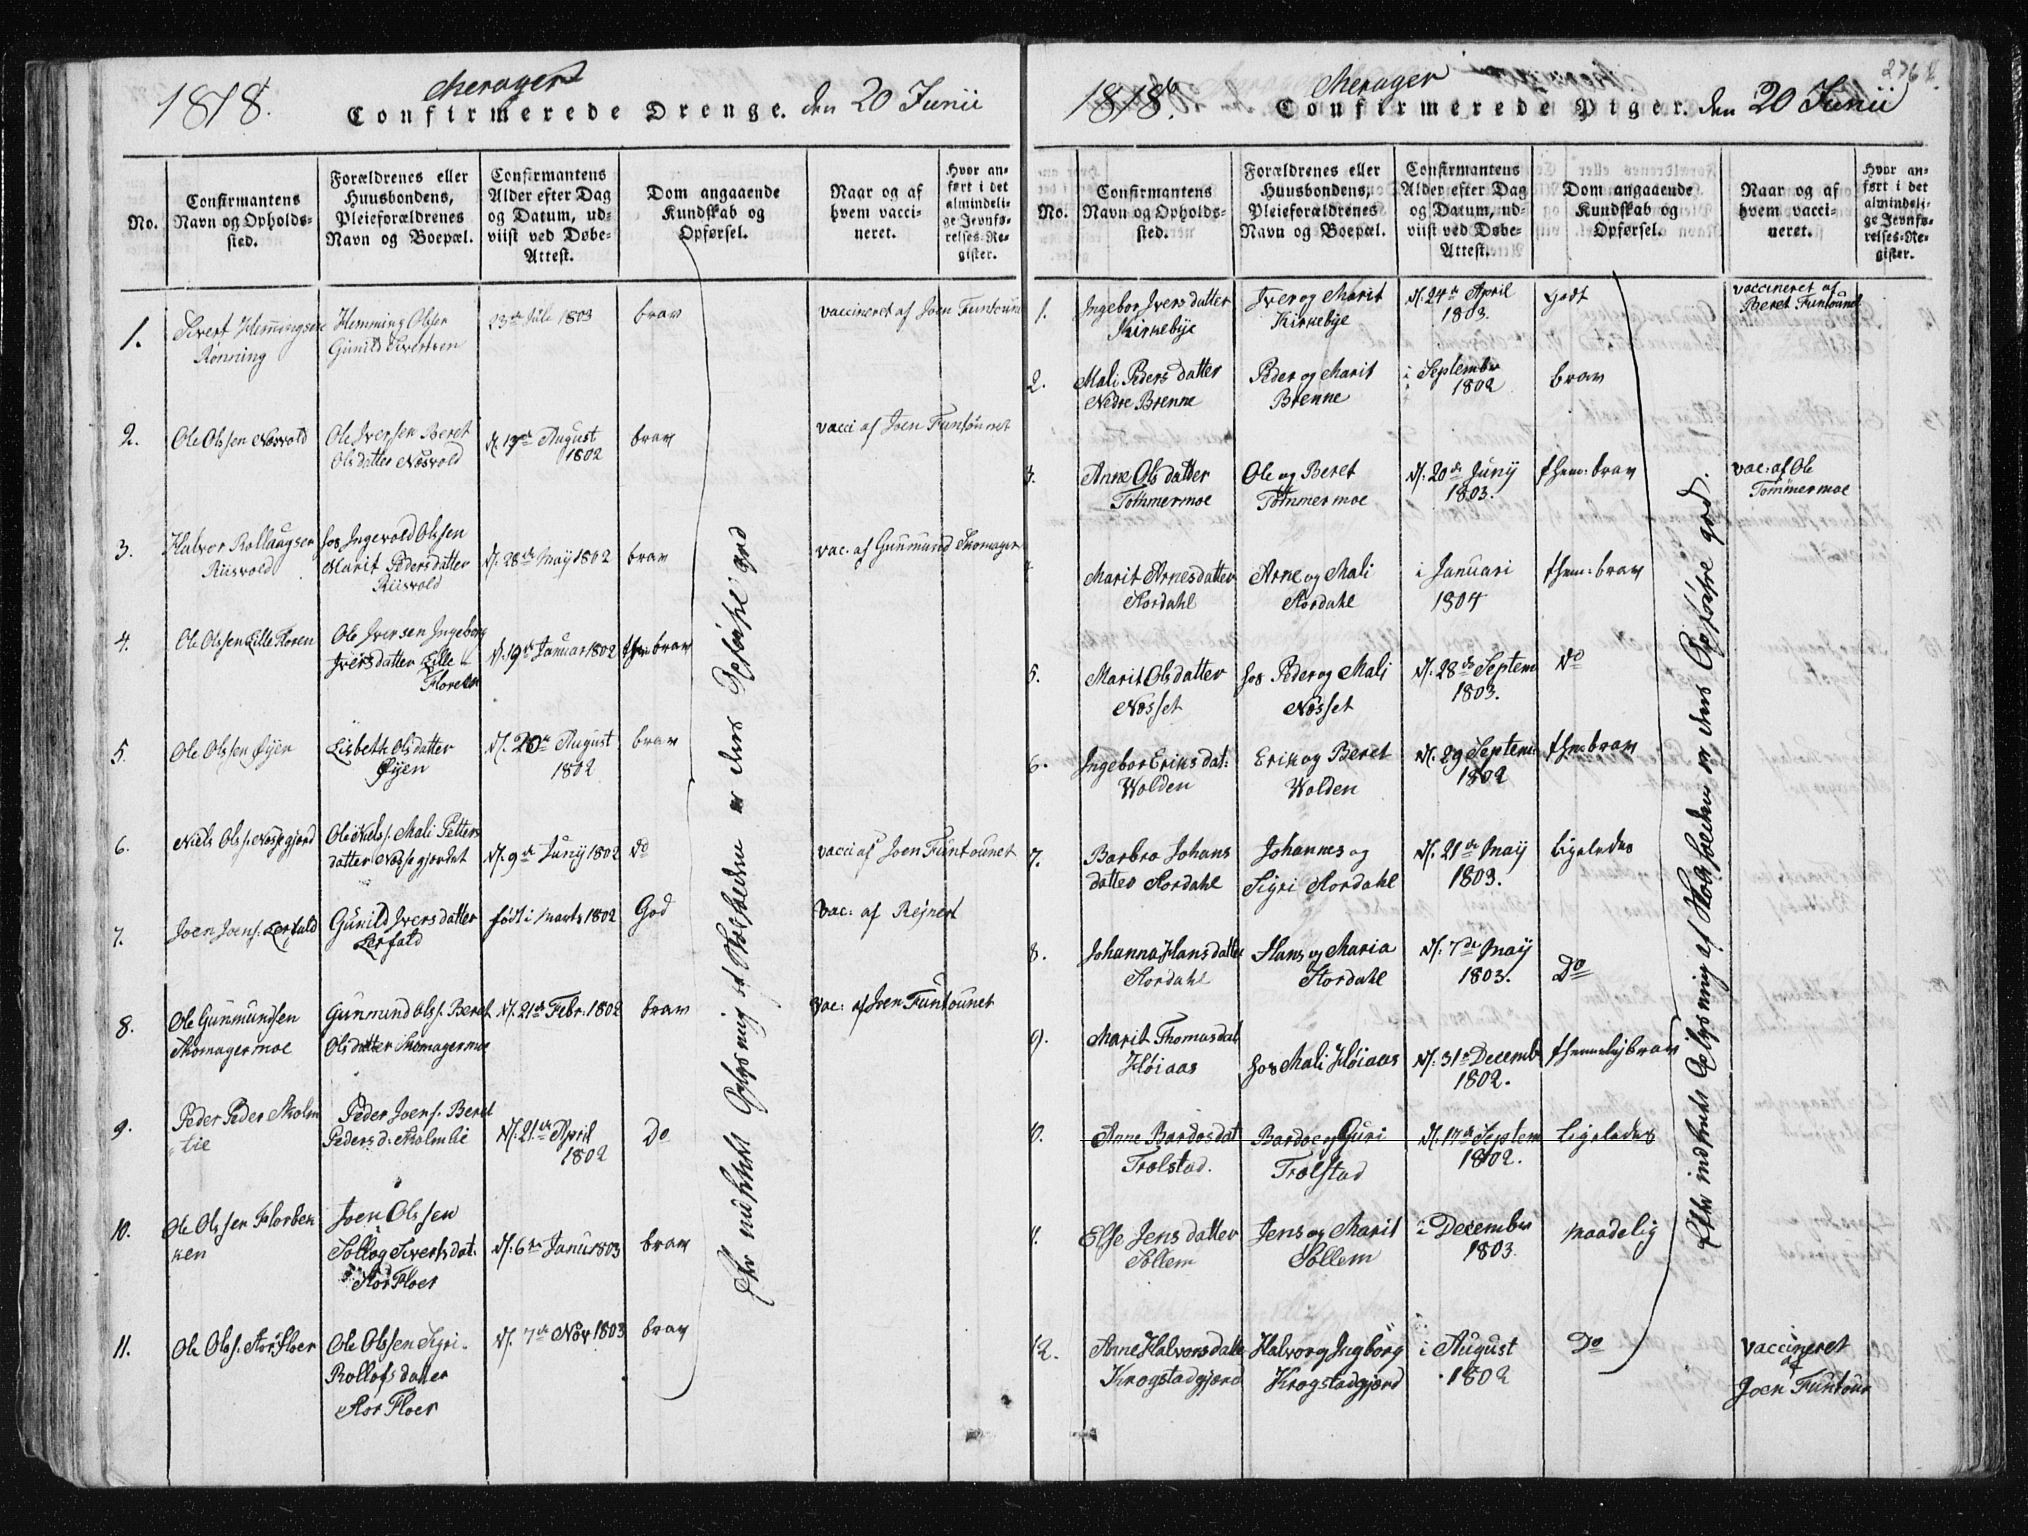 1818.
Meragers
Confirmerede Drenge. den 20 Junii
No.
Confirmantens
Navn og Opholds-
sted.
Forældrenes eller
Huusbondens,
Pleieforældrenes
Navn og Boepæl.
Confirmantens
Alder efter Dag
og Datum, ud-
viist ved Døbe-
Attest.
Dom angaaende
Kundskab og
Opførsel.
Naar og af
hvem vacci-
neret.
Hvor an-
ført i det
almindeli-
ge Jevnfø-
relses-Re-
gister.
1.
Sivert Hemmingsen
Rønning
Hemming Olsen
Gunild Sivertsen
23de Juli 1803
brav
vaccineret af Joen Funtoune
2.
Ole Olssen Nosvold
Ole Iversen Beret
Olsdatter Nosvold
d. 19de August
1802
brav
vacci af Joen Funtounet
3.
Halvor Rollaugsen
Riisvold
hos Ingevold Olssen
Marit Pedersdatter
Riisvold
d. 28de May 1802
brav
vac: af Gunmund Thomager
4.
Ole Olssen Lille Floren
Ole Iversen Ingeborg
Iversdatter Lille
Floren
d. 19de Januar 1802
brav
5.
Ole Olssen Øyen
Lisbeth Olsdatter
Øyen
d. 20de August
1802
brav
6.
Niels Olss. Næssgjerd
Ole Niels. Mali Petters
datter Næssegjerdet
d. 9de Junij 1802
do
vacci af Joen Funtounet
7.
Joen Joens. Lerfald
Gunild Iversdatter
Lerfald
født i Marts 1802
God
Vac: af Rejnert
8.
Ole Gunmundsen
Thomagermoe
Gunmund Olss. Beret
Olsdatter Thomagermoe
d. 21de Febr. 1802
brav
Vac: af Joen Funtounet
9.
Peder Peder Stolm
lie
Peder Joens. Beret
Pedersd. Stolmlie
d. 21de April
1802
Do
10.
Ole Olssen Florben
ken
Joen Olssen
Sollog Sivertsdat.
Stor Floer
d: 6te Janu 1803
brav
11.
Ole Olss. Stor Floer
Ole Olssen Sigri
Rollofsdatter
Stor Floer
d. 7de Nov 1803
brav
Efter indhentet Oplysning af Skolholderen er deres Opførsel god
1818.
Merager
Confirmerede Piger. den 20 Junii
No.
Confirmantens
Navn og Opholds-
sted.
Forældrenes eller
Huusbondens,
Pleieforældrenes
Navn og Boepæl.
Confirmantens
Alder efter Dag
og Datum, ud-
viist ved Døbe-
Attest.
Dom angaaende
Kundskab og
Opførsel.
Naar og af
hvem vacci-
neret.
Hvor an-
ført i det
almindeli-
ge Jevnfø-
relses-Re-
gister.
1.
Ingebor Iversdatter
Kirkebye
Iver og Marit
Kirkebye
d. 24de April
1803.
godt
vaccineret af
Beret Funtounet
2.
Mali Peders datter
Nedre Brenne
Peder og Marit
Brenne
i Septembr
1802
brav
3.
Anne Ols datter
Tommermoe
Ole og Beret
Tommermoe
d. 20de Junij
1803.
them: brav
vac: af Ole
Tommermoe
Marit Arnesdatter
Stordahl
Arne og Mali
Stordahl
i Januari
1804
them: brav
5.
Marit Olsdatter
Næsset
hos Peder og Mali
Næsset
d. 28de Septem
1803.
do
6.
Ingebor Eriksdat:
Wolden
Erik og Beret
Wolden
d. 29 Septem:
1802
them brav
7.
Barbro Johans
datter Stordahl
Johannes og
Sigri Stordahl
d. 21de May
1803.
ligeledes
8.
Johanna Hansdatter
Stordahl
Hans og Maria
Stordahl
d. 7de May
1803.
Do
9.
Marit Thomasdat
Høiaas
hos Mali Høiaas
d. 31te Decemb
1802.
themelig brav
0.
Anne Bardosdat
Trolstad.
Bardoe og Guri
Trolstad
d. 17de Septem
1802.
ligeledes
Else Jensdatter
Sollem
Jens og Marit
Sollem
i Decembr
1803.
maadelig
12.
Anne Halvorsdatte
Krogstadgjerd
Halvor og Ingborg
Krogstadgjerd
i August
1802
Do
vaccineret
af
Joen Funtoun
Efter indhentet Oplysning af Skolholderen er deres Opførsel god.